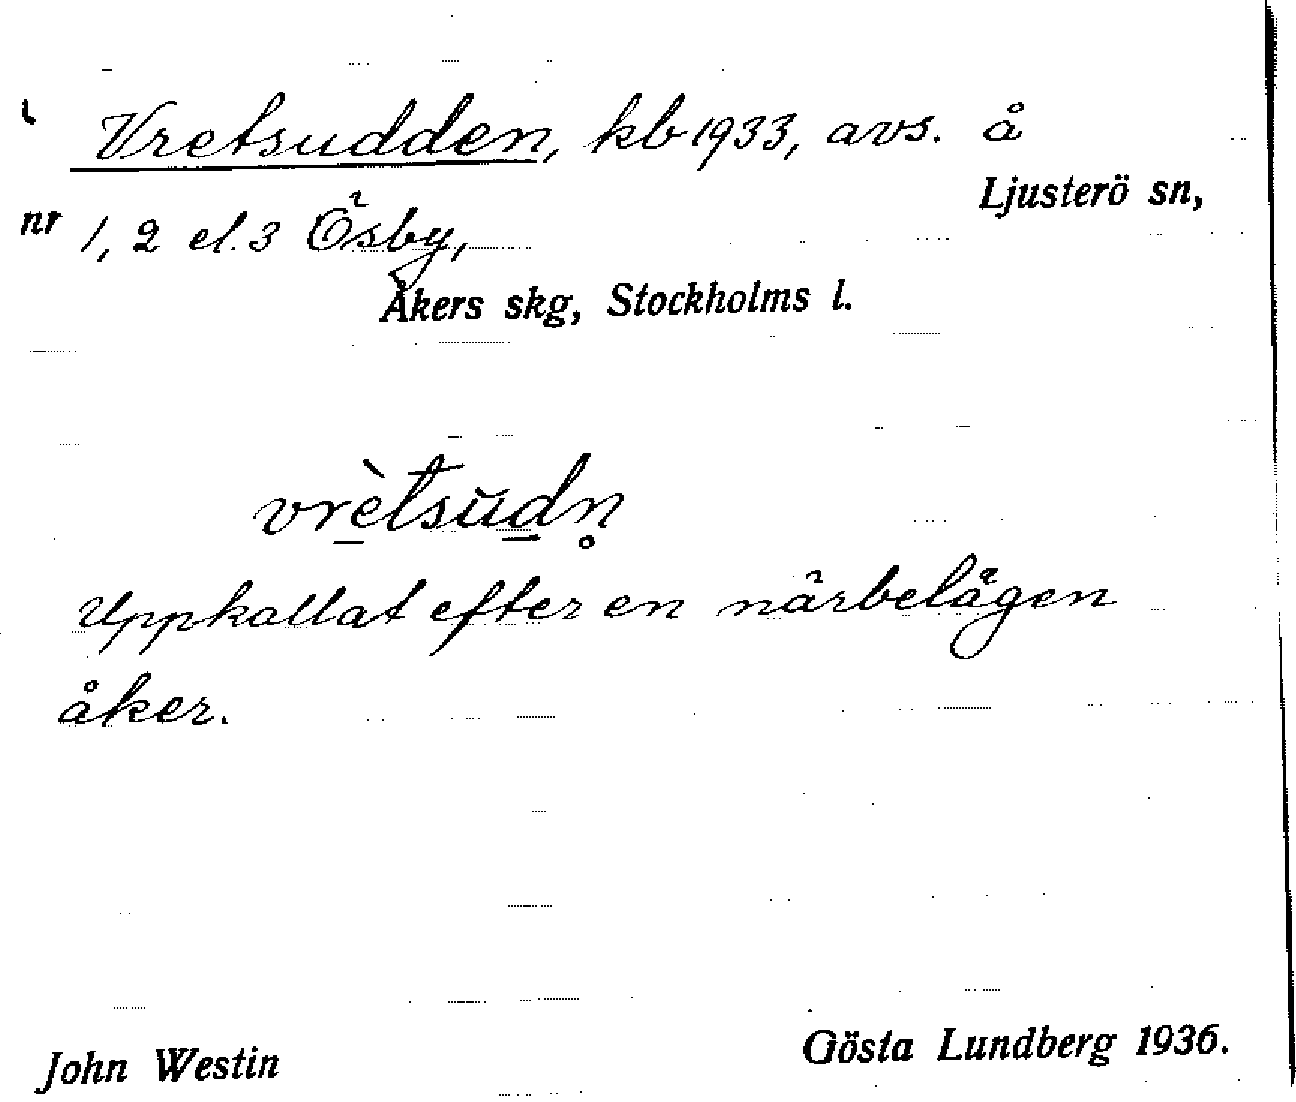 Vretsudden, kb 1933, avs. å
Ljusterö sn,
nr 1, 2 el. 3 Ösby,
Åkers skg, Stockholms l.
vrètsŭdn̥
Uppkallat efter en närbelägen
åker.
John Westin
Gösta Lundberg 1936.